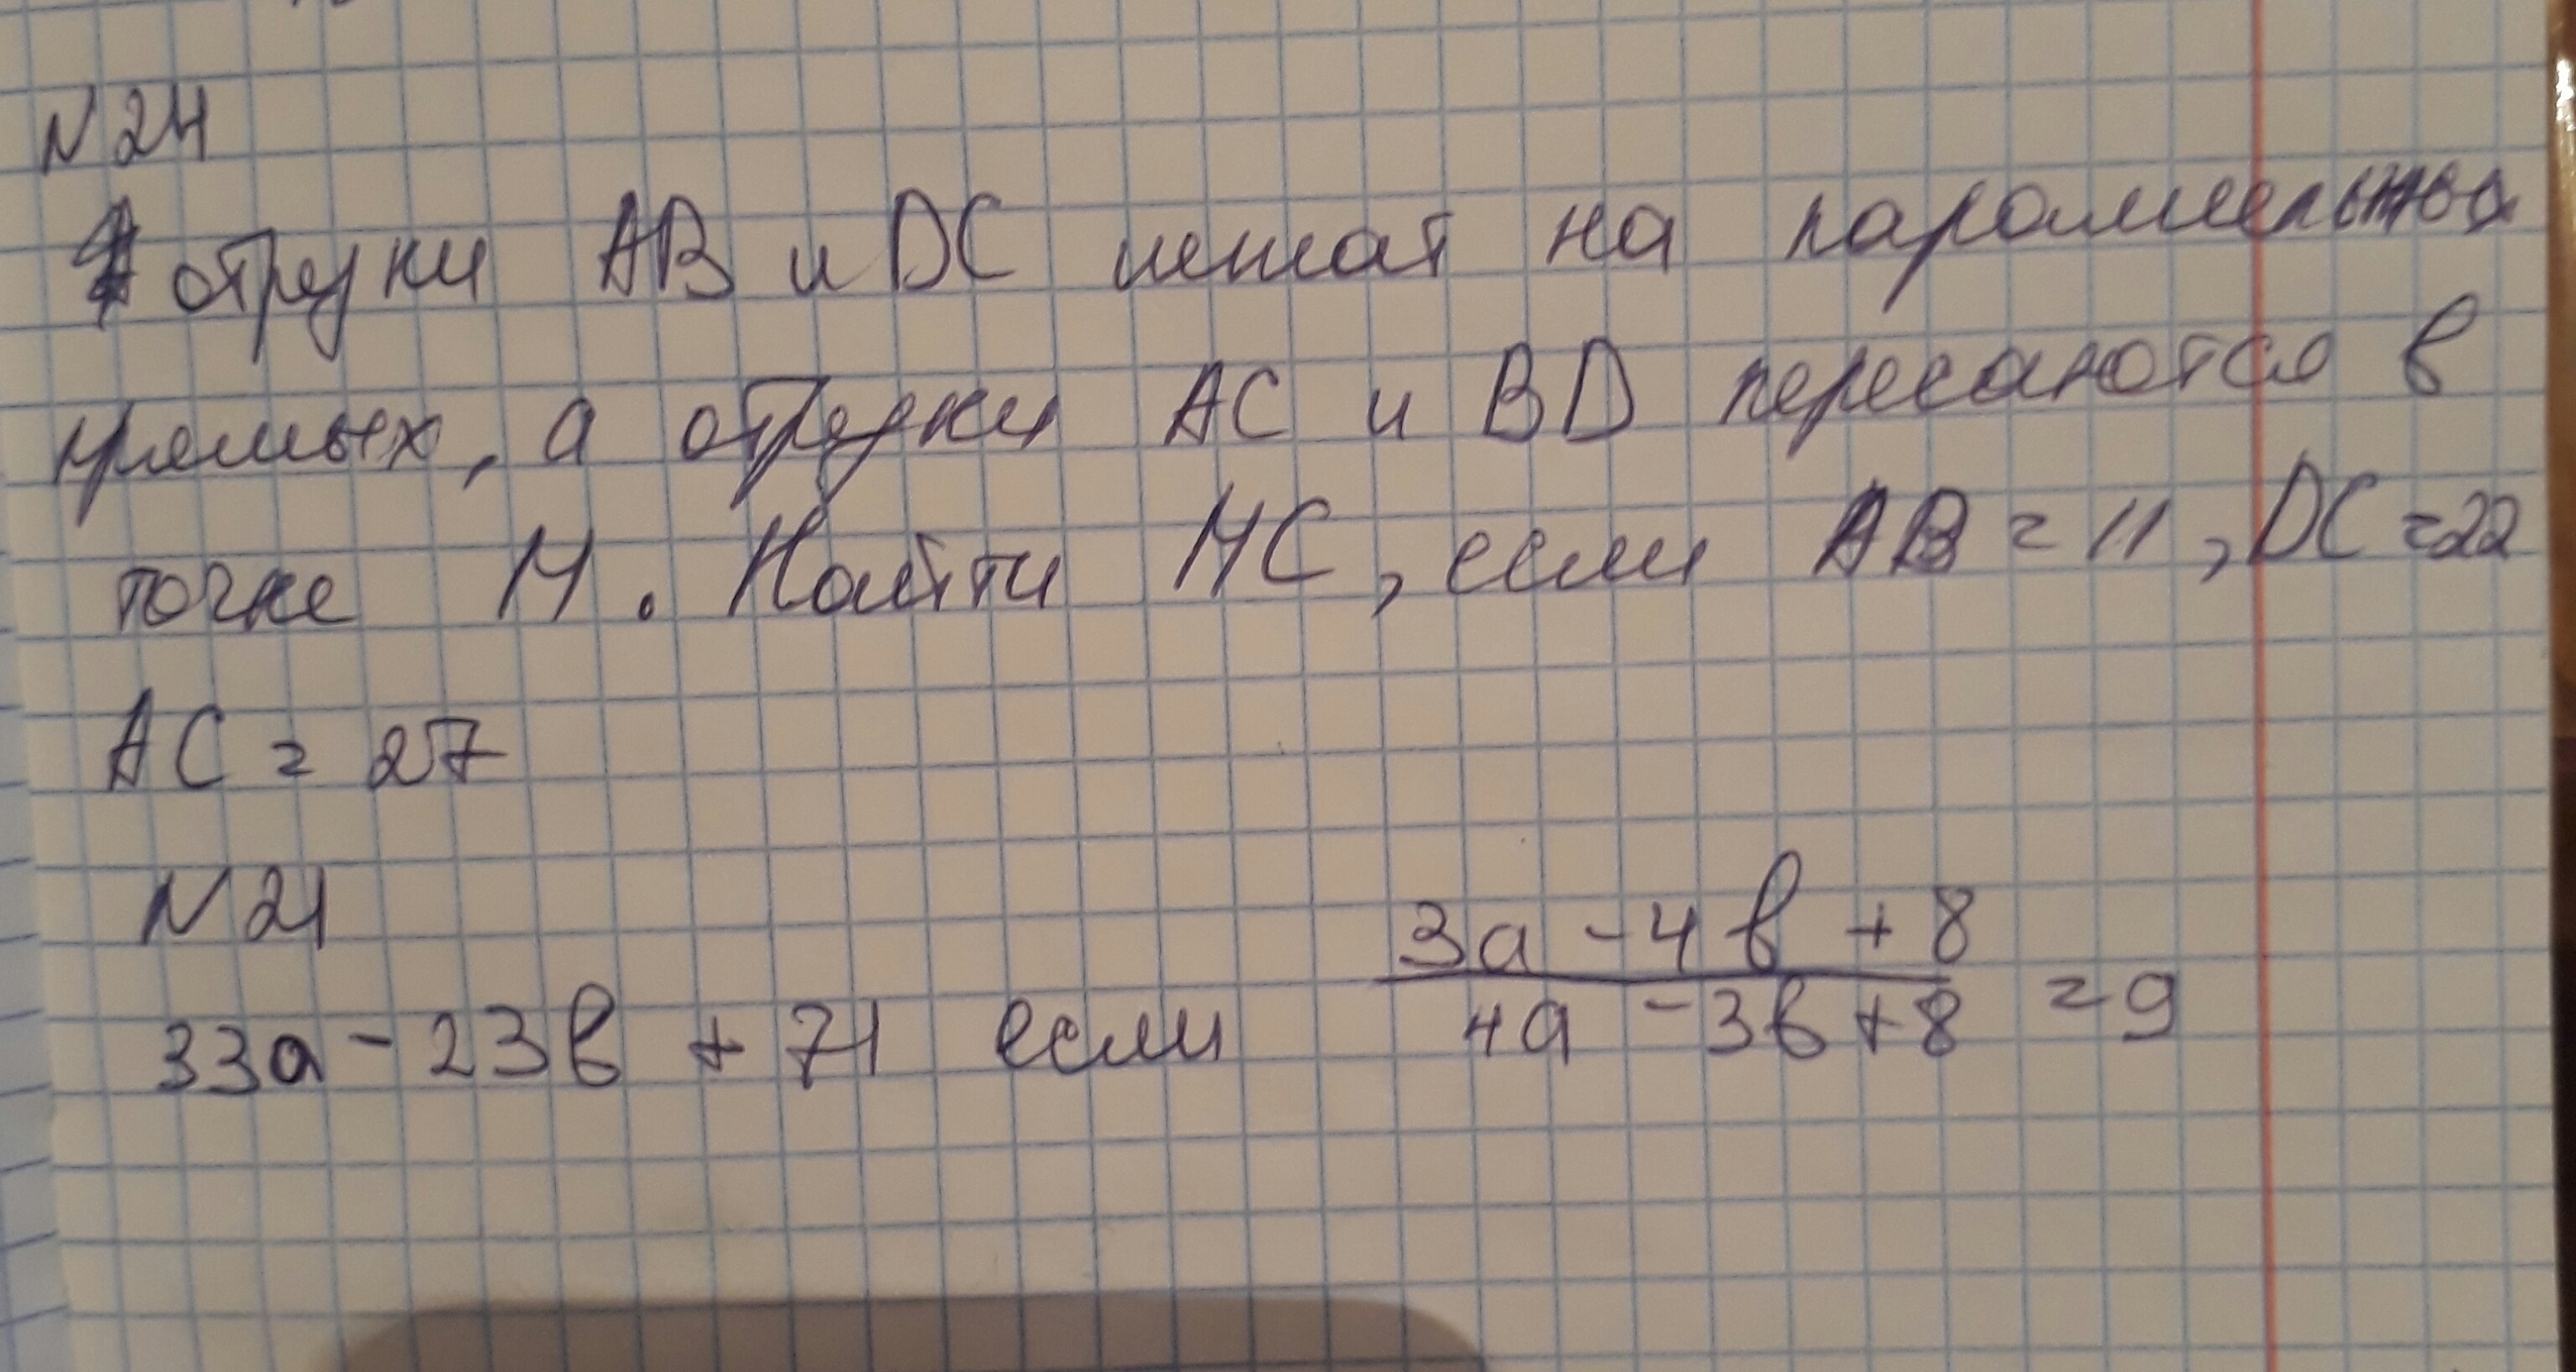 N 24
отрезки AB и DC лежат на параллельных
прямых, а отрезки AC и BD пересекаются в
точке M. Найти MC, если AB = 11, DC = 22
AC = 27
N 21
33a - 23b + 71 если 3a - 4b + 8 / 4a - 3b + 8 = 9